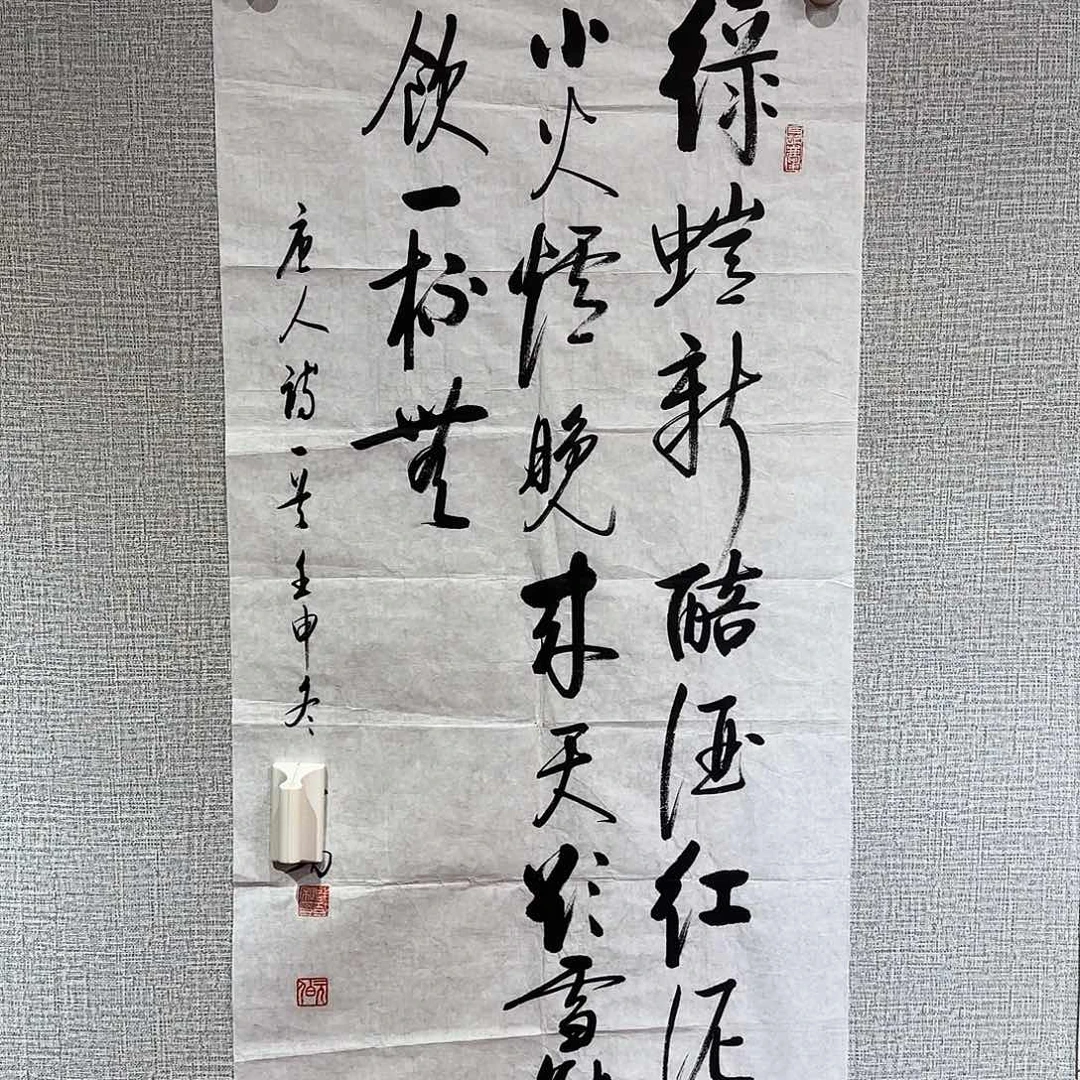 綠螘新醅酒紅泥
小火爐晚來天欲雪能
飲一杯無
唐人詩一首壬申冬